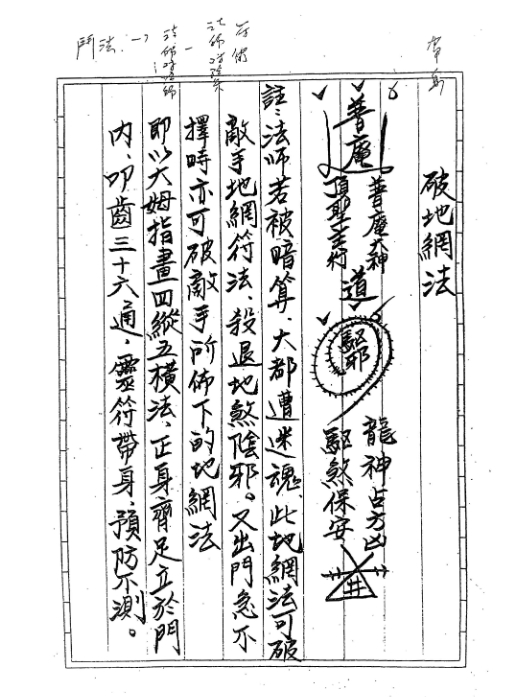 破地網法
普庵
普庵大神
頂聖奉行
道
驅邪
龍神占方凶
驅煞保安
井
註:法師若被暗算、大都遭迷魂、此地網法可破
敵手地網符法、殺退地煞陰邪。又出門急不
擇時亦可破敵手所佈下的地網法
即以大姆指畫四縱五橫法、正身齊足立於門
內、叩齒三十六通、靈符帶身、預防不測。
鬥法: